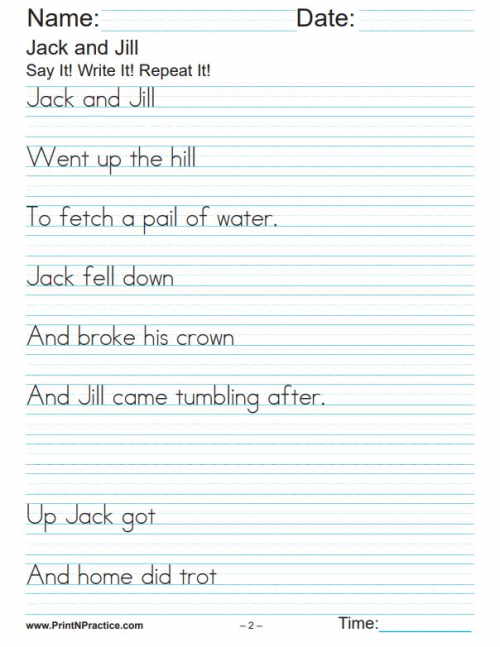 Name: Date:
Jack and Jill
Say It! Write It! Repeat It!
Jack and Jill
Went up the hill
To fetch a pail of water.
Jack fell down
And broke his crown
And Jill came tumbling after.
Up Jack got
And home did trot
www.PrintNPractice.com – 2 – Time: